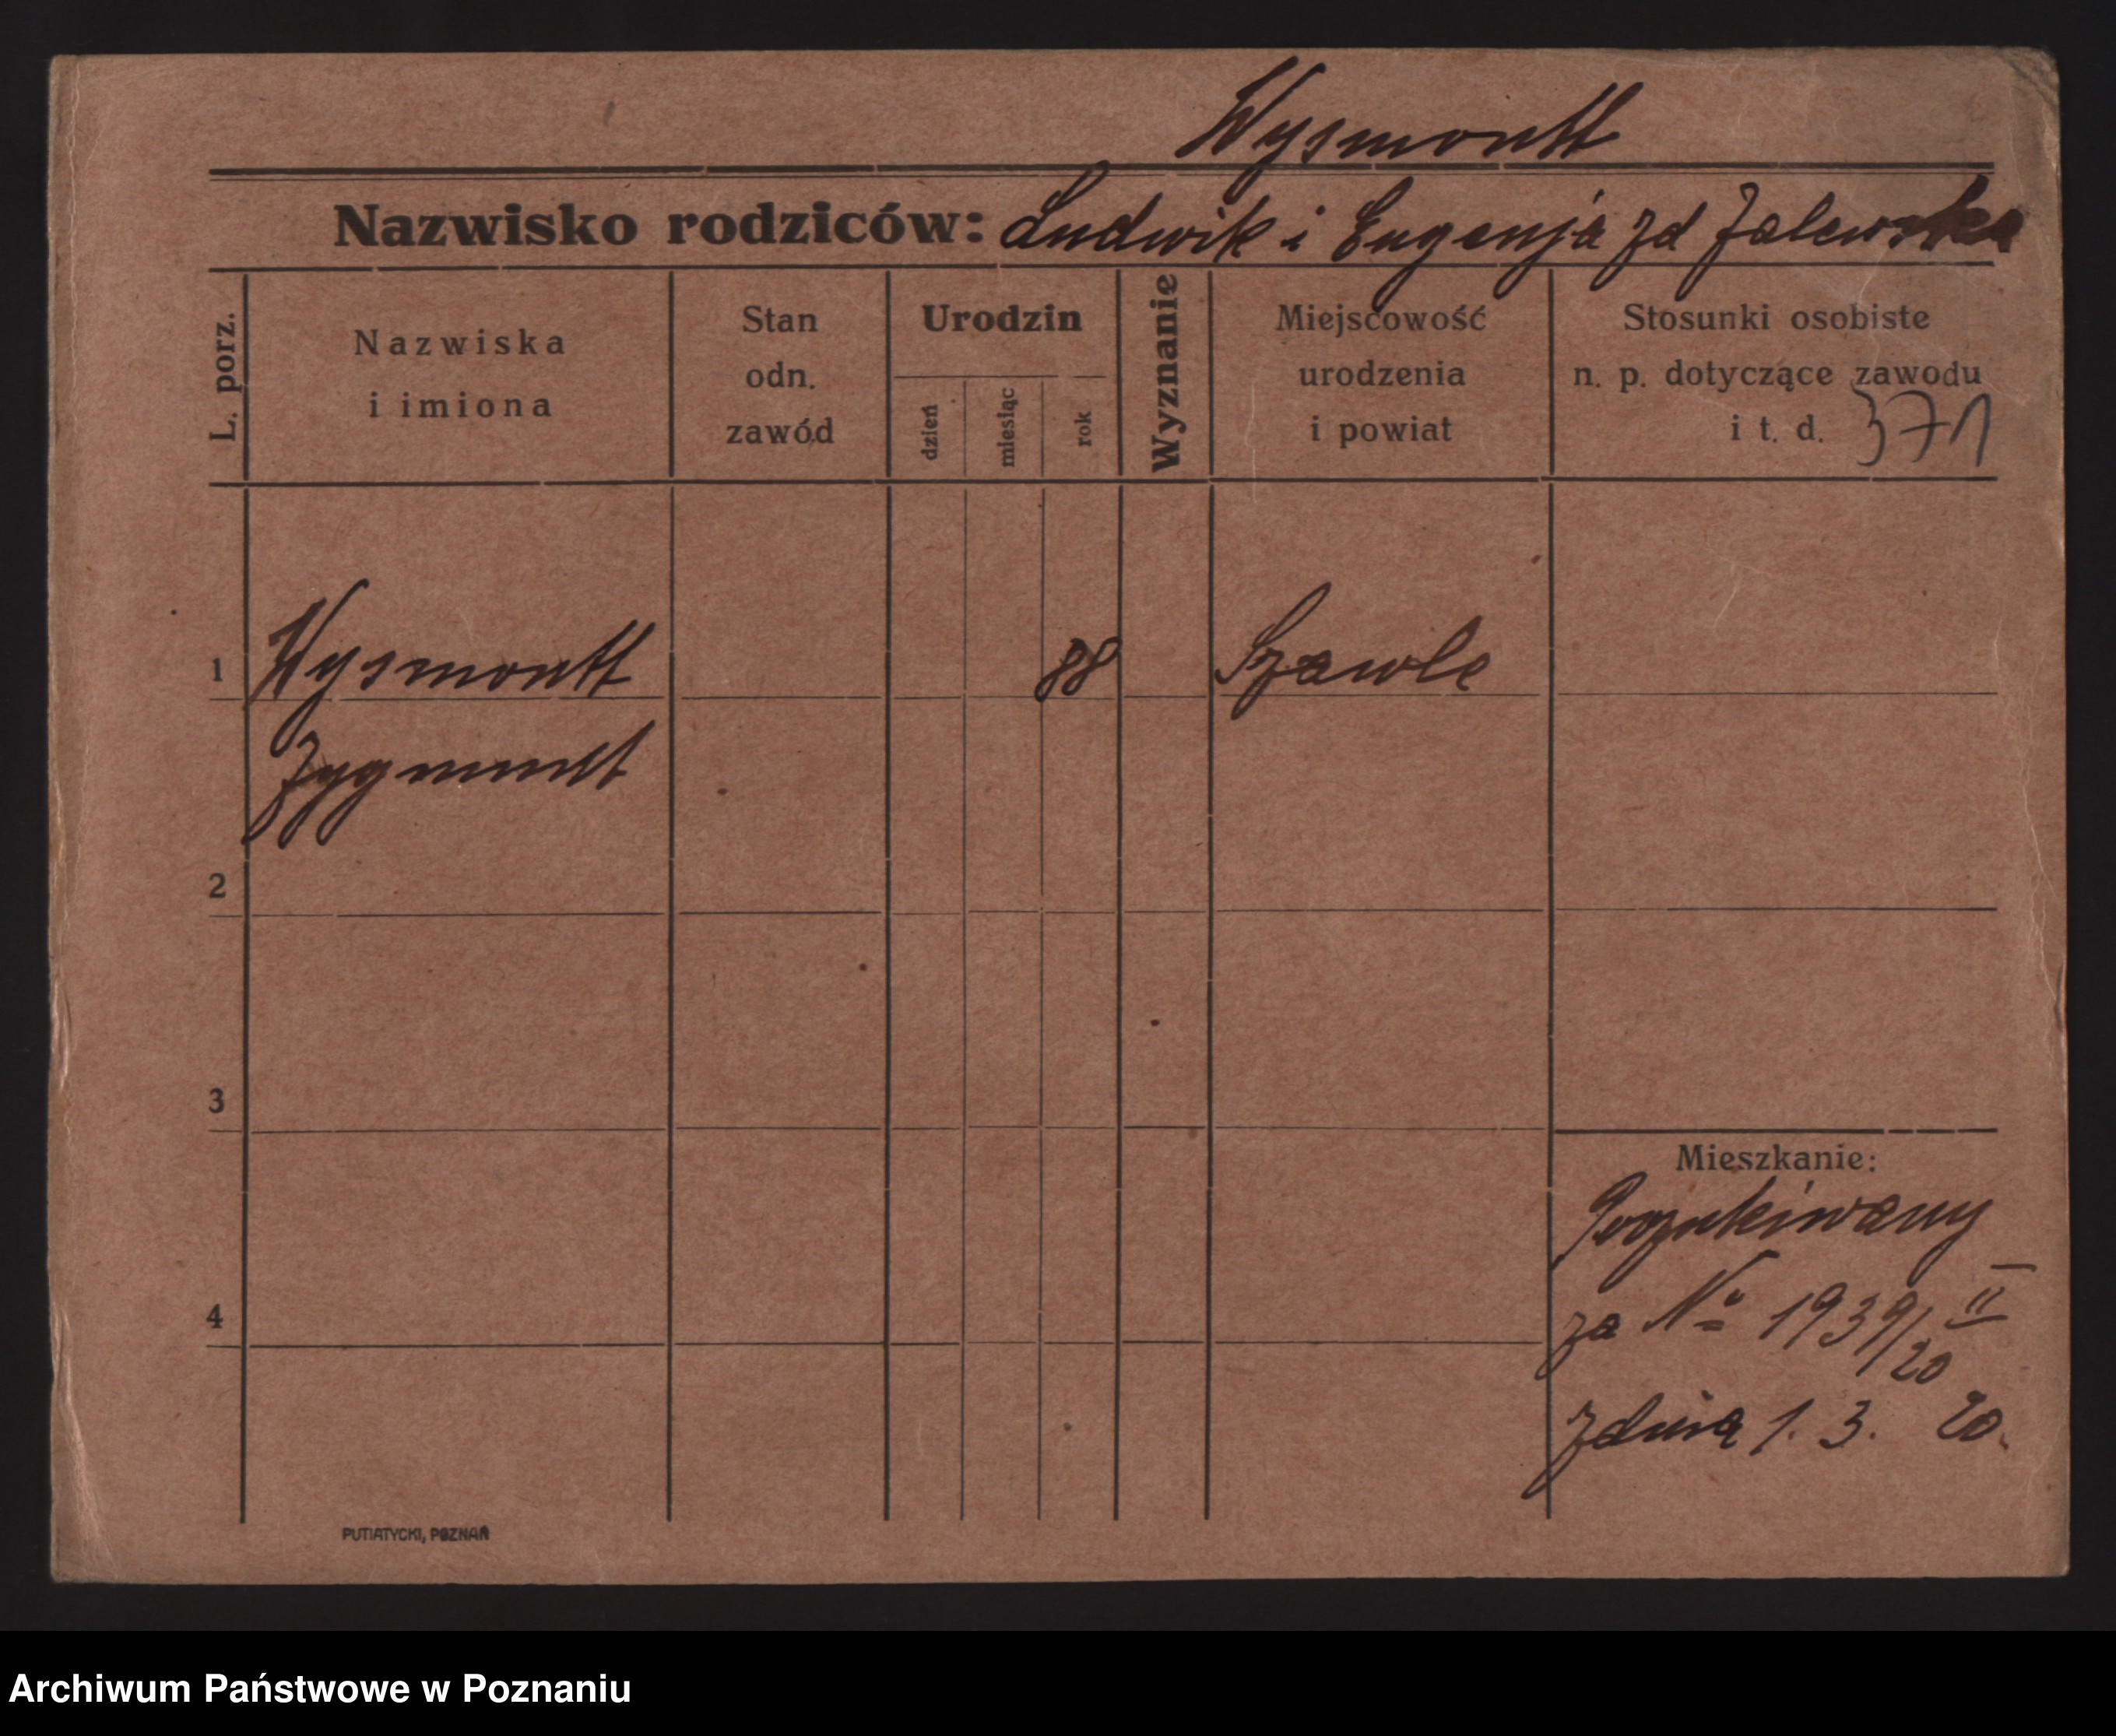 Wysmontt
Nazwisko rodziców: Ludwik i Eugenja zd Zalewska
L. porz.
Nazwiska
i imiona
Stan
odn.
zawód
Urodzin
dzień
miesiąc
rok
Wyznanie
Miejscowość
urodzenia
i powiat
Stosunki osobiste
n. p. dotyczące zawodu
i t. d. 371
1 Wysmontt 88 Szawle
Zygmunt
2
3
Mieszkanie:
Poszukiwany
za No 1939/20 II
4
z dnia 1. 3. 20.
PUTIATYCKI, POZNAŃ
Archiwum Państwowe w Poznaniu